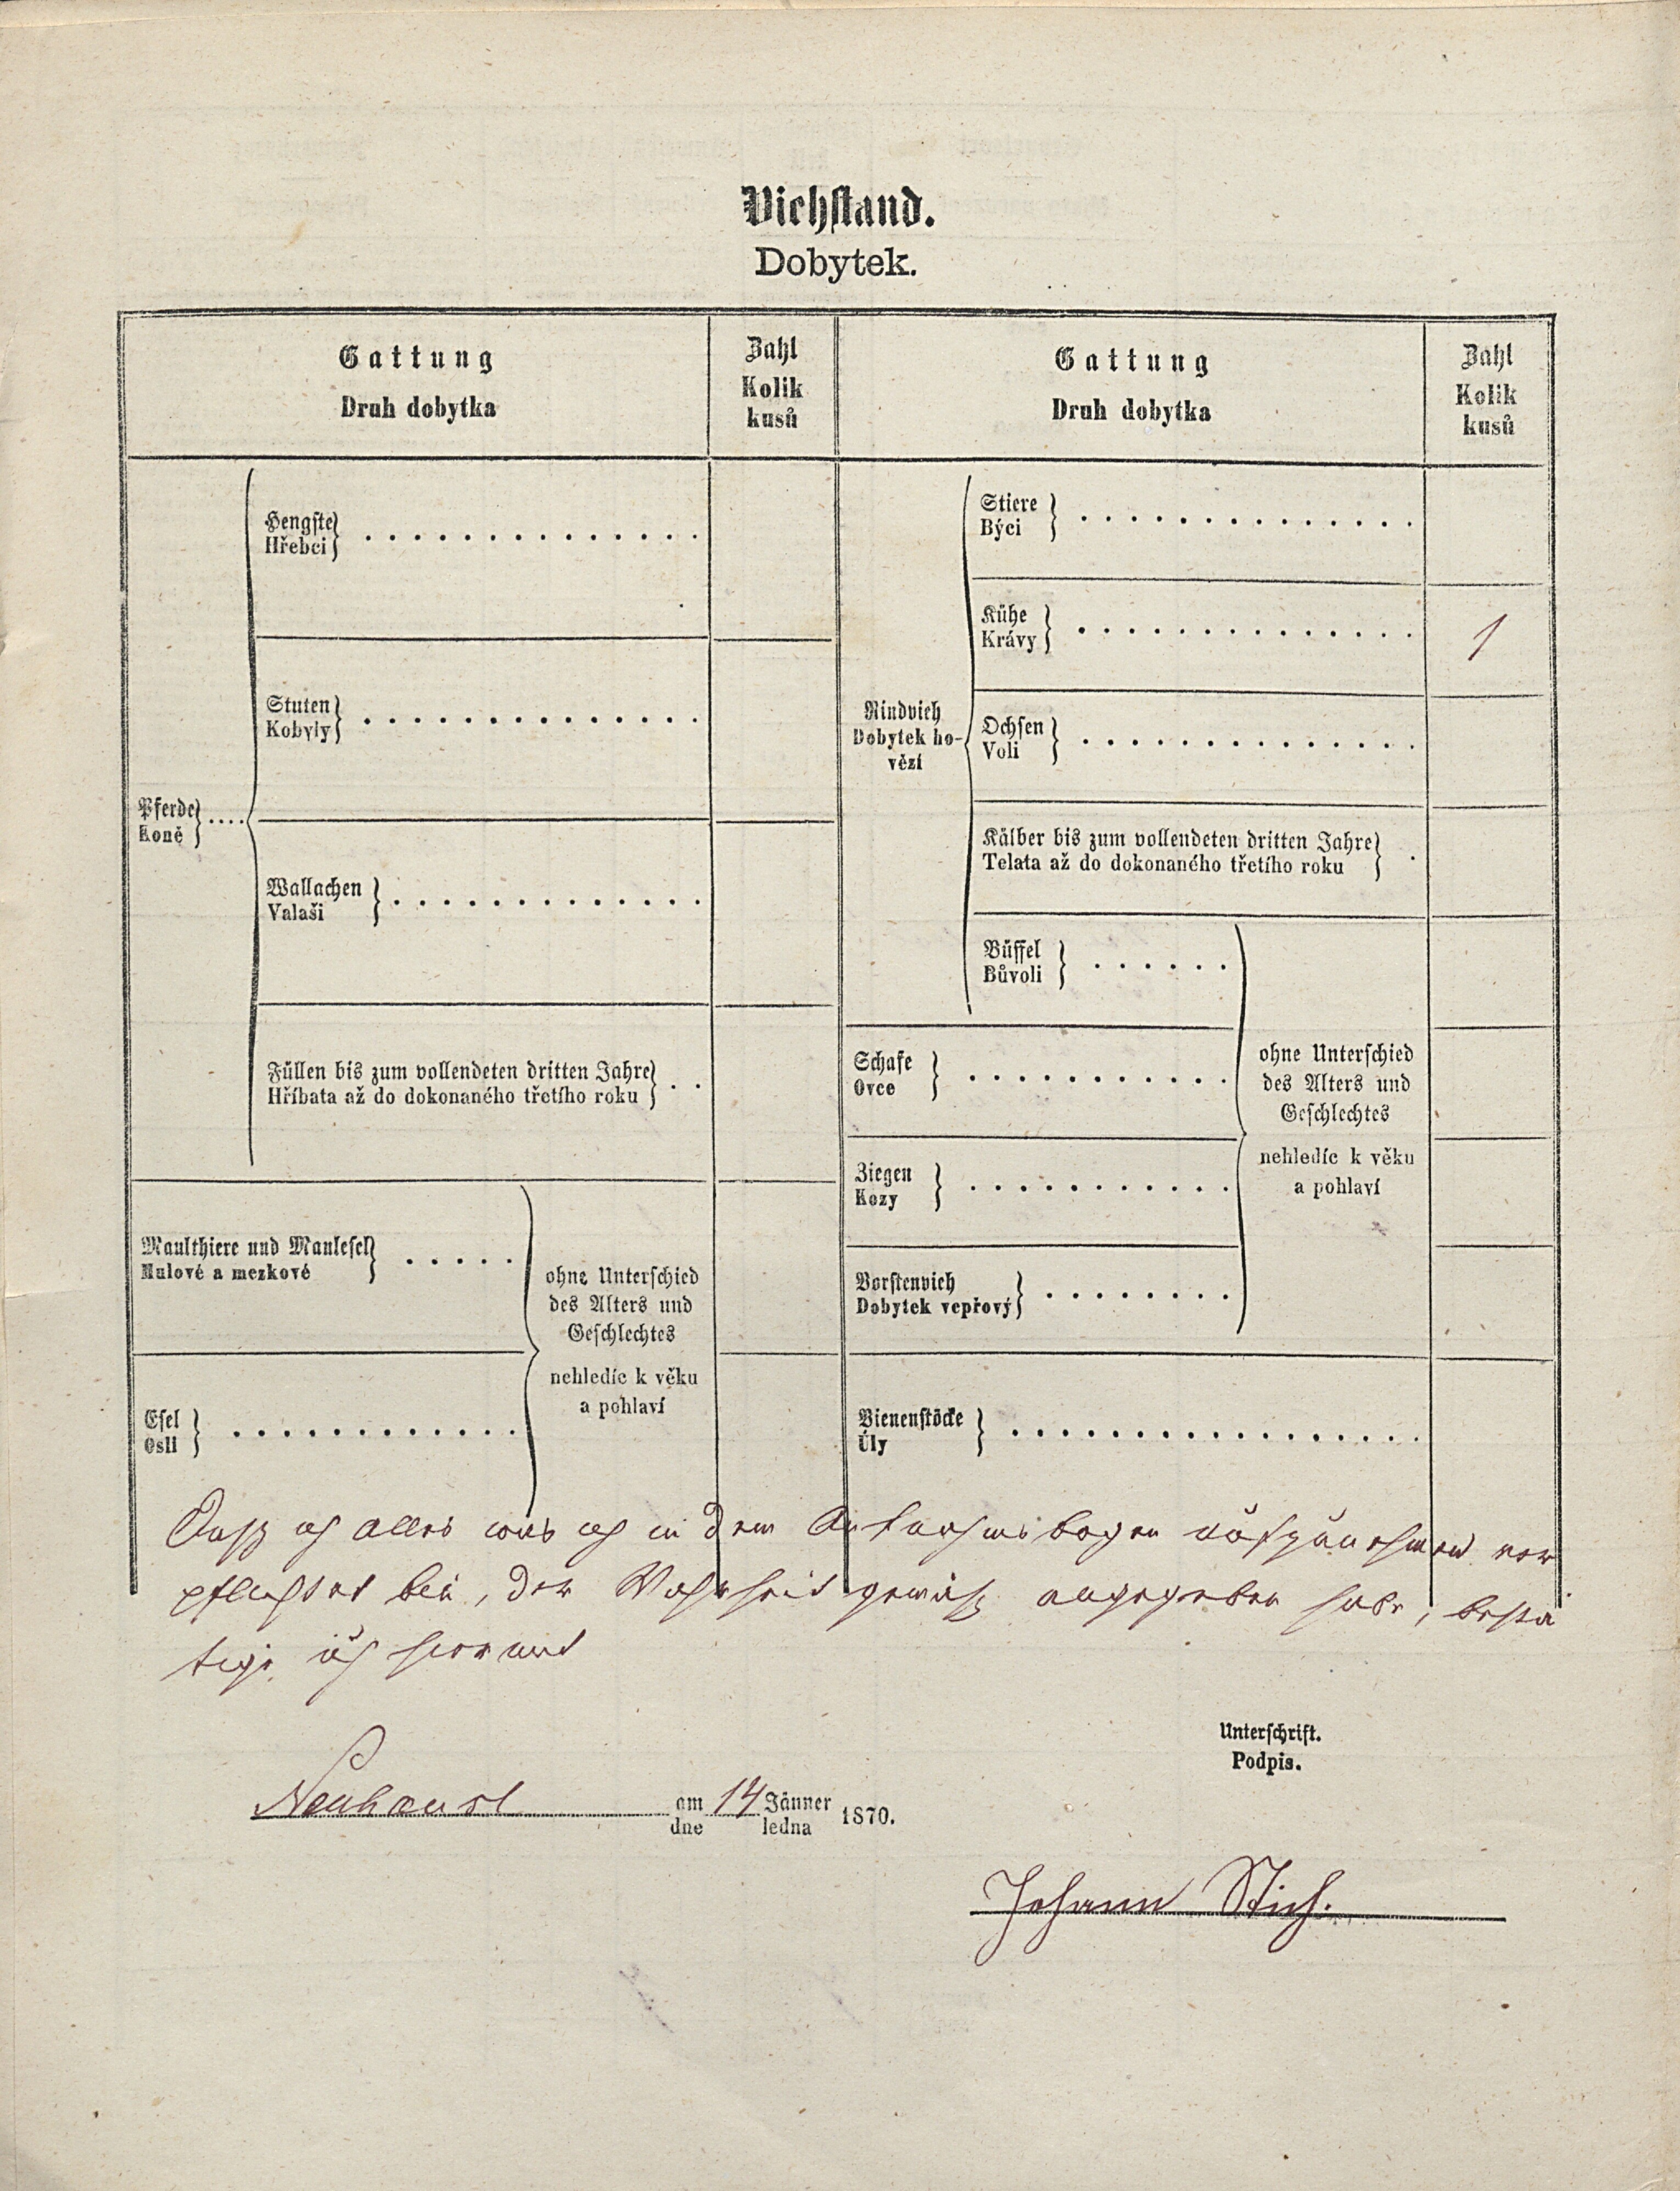 Viehstand.
Dobytek.
Gattung
Druh dobytka
Zahl
Kolik
kusů
Gattung
Druh dobytka
Zahl
Kolik
kusů
Pferde
Koně
Hengste
Hřebci
Stuten
Kobyly
Wallachen
Valaši
Füllen bis zum vollendeten dritten Jahre
Hříbata až do dokonaného třetího roku
Maulthiere und Maulesel
Mulové a mezkové
Esel
Osli
ohne Unterschied
des Alters und
Geschlechtes
nehledíc k věku
a pohlaví
Rindvieh
Dobytek ho-
vězí
Stiere
Býci
Kühe
Krávy
1
Ochsen
Voli
Kälber bis zum vollendeten dritten Jahre
Telata až do dokonaného třetího roku
Büffel
Bůvoli
Schafe
Ovce
Ziegen
Kozy
Borstenvieh
Dobytek vepřový
ohne Unterschied
des Alters und
Geschlechtes
nehledíc k věku
a pohlaví
Bienenstöcke
Úly
Daß ich alles was ich in dem aufzunehmen ver
pflichtet bin, der Wahrheit gemäß angegeben habe, bestä
tige ich hiermit
Unterschrift.
Podpis.
Neuhäusl am 14 Jänner 1870.
dne ledna
Johann Stich.